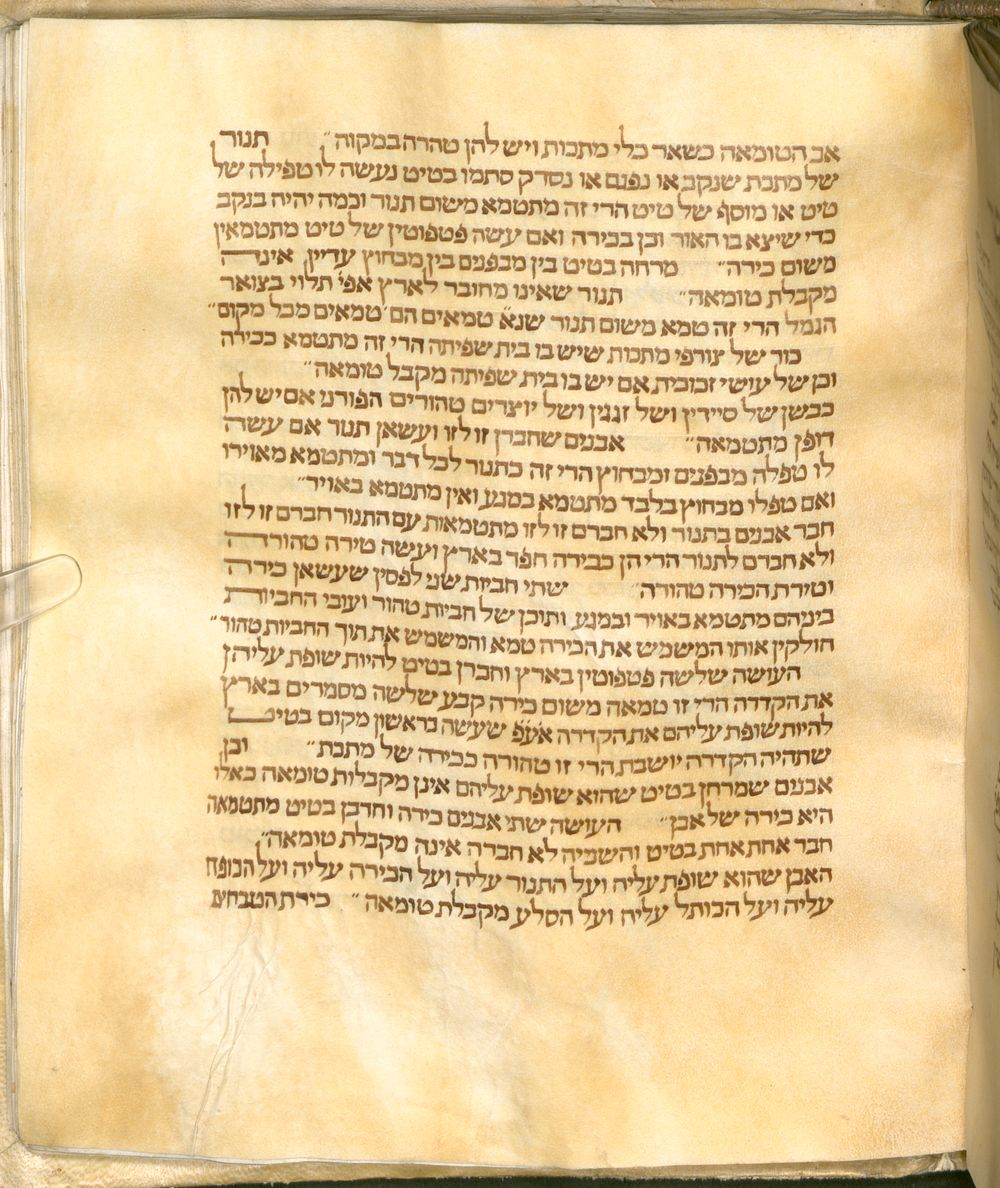 אב הטומאה כשאר כלי מתכות ויש להן טהרה במקוה״ תנור
של מתכת שנקב או נפגם או נסדק סתמו בטיט נעשה לו טפילה של
טיט או מוסף של טיט הרי זה מתטמא משום תנור וכמה יהיה בנקב
כדי שיצא בו האור וכן בכירה ואם עשה פטפוטין של טיט מתטמאין
משום כירה״ מרחה בטיט בין מבפנים בין מבחוץ עדיין אינה
מקבלת טומאה״ תנור שאינו מחובר לארץ אפי׳ תלוי בצואר
הגמל הרי זה טמא משום תנור שנ״א טמאים הם טמאים מכל מקום״
כור של צורפי מתכות שיש בו בית שפיתה הרי זה מתטמא ככירה
וכן של עושי זכוכית אם יש בו בית שפיתה מקבל טומאה״
כבשן של סיידין ושל זגגין ושל יוצרים טהורים הפורני אם יש להן
דופן מתטמאה״ אבנים שחברן זו לזו ועשאן תנור אם עשה
לו טפלה מבפנים ומבחוץ הרי זה כתנור לכל דבר ומתטמא מאוירו
ואם טפלו מבחוץ בלבד מתטמא במגע ואין מתטמא באויר״
חבר אבנים בתנור ולא חברם זו לזו מתטמאות עם התנור חברם זו לזו
ולא חברם לתנור הרי הן ככירה חפר בארץ ועשה טירה טהורה
וטירת הכירה טהורה״ שתי חביות שני לפסין שעשאן כירה
ביניהם מתטמא באויר ובמגע ותוכן של חביות טהור ועובי החביות
חולקין אותו המשמש את הכירה טמא והמשמש את תוך החביות טהור״
העושה שלשה פטפוטין בארץ וחברן בטיט להיות שופת עליהן
את הקדרה הרי זו טמאה משום כירה קבע שלשה מסמרים בארץ
להיות שופת עליהם את הקדרה אע״פ שעשה בראשון מקום בטיט
שתהיה הקדרה יושבת הרי זו טהורה ככירה של מתכת״ וכן
אבנים שמרחן בטיט שהוא שופת עליהם אינן מקבלות טומאה כאלו
היא כירה של אבן״ העושה שתי אבנים כירה וחדבן בטיט מתטמאה
חבר אחת אחת בטיט והשנייה לא חברה אינה מקבלת טומאה״
האבן שהוא שופת עליה ועל התנור עליה ועל הכירה עליה ועל הכופח
עליה ועל הכותל עליה ועל הסלע מקבלת טומאה״ כירת הטבחים